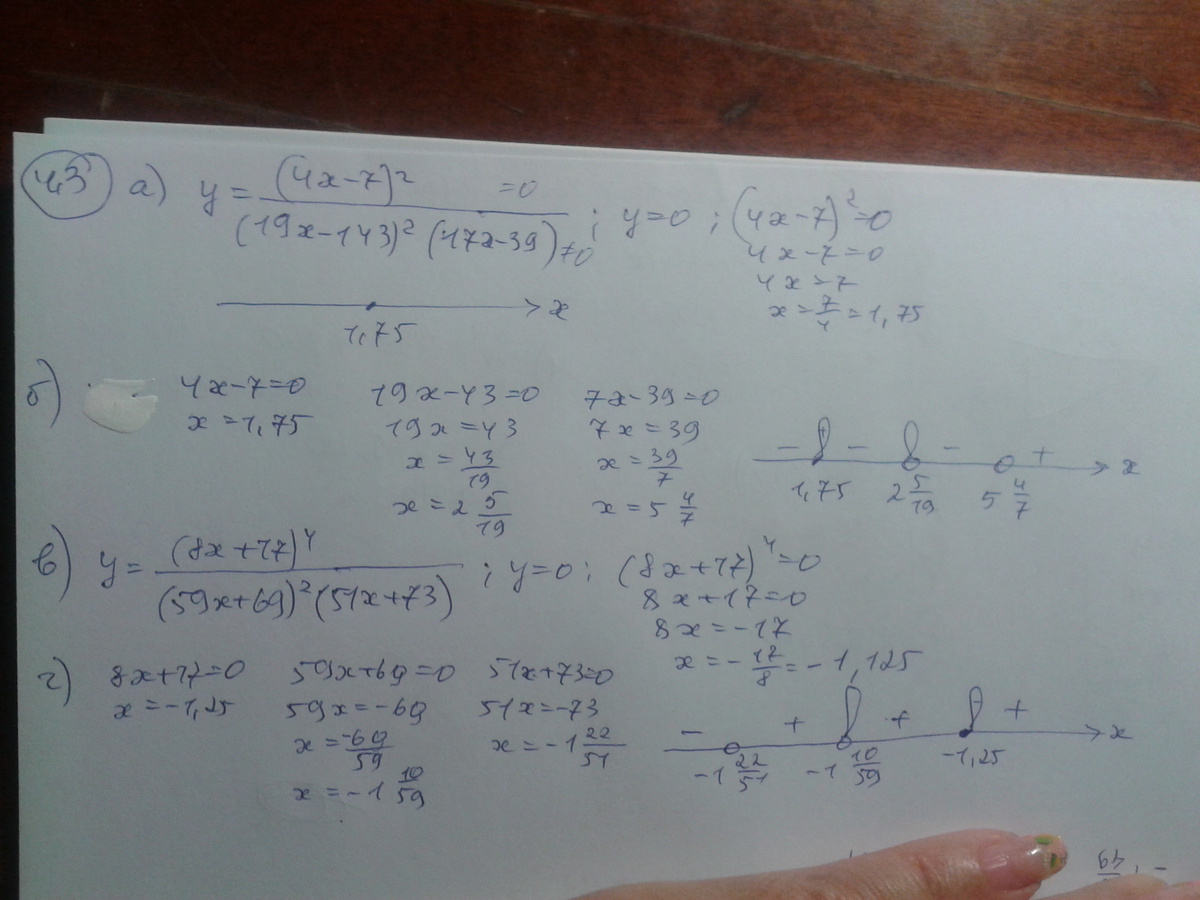 43 а) y = (4x-7)² =0 / (19x-143)² (17x-39) ≠0 ; y=0 ; (4x-7)²=0
4x-7=0
4x=7
x = 7/4 = 1,75
x
1,75
б) 4x-7=0
x = 1,75
19x-43=0
19x = 43
x = 43/19
x = 2 5/19
7x-39=0
7x = 39
x = 39/7
x = 5 4/7
- - - + x
1,75 2 5/19 5 4/7
в) y = (8x+17)⁴ / (59x+69)² (51x+73) ; y=0 ; (8x+17)⁴=0
8x+17=0
8x = -17
x = -17/8 = -1,125
г) 8x+17=0
x = -1,25
59x+69=0
59x = -69
x = -69/59
x = -1 10/59
51x+73=0
51x = -73
x = -1 22/51
- + + + x
-1 22/51 -1 10/59 -1,25